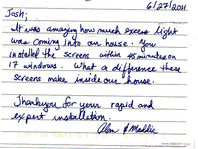 6/27/2011
Josh;
It was amazing how much excess light
was coming into our house. You
installed the screens within 45 minutes on
17 windows. What a difference these
screens make inside our home.
Thank you for your rapid and
expert installation.
Alan & Maddie